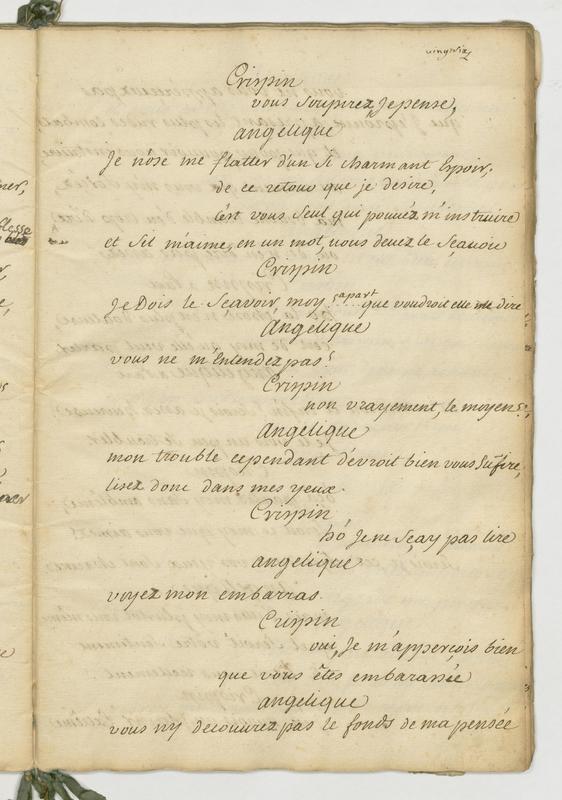 vingtsix
Crispin
vous Soupirez, Je pense,
angelique
Je n'ose me flatter d'un Si charmant Espoir;
de ce retour que je desire,
C'est vous Seul qui pouvéz m'instruire
et S'il m'aime, en un mot, vous devez le Sçavoir
Crispin
Je Dois le Sçavoir, moy apart que voudroit elle me dire
Angélique
vous ne m'Entendez pas?
Crispin
non vrayement, le moyen?
Angelique
mon trouble cependant dévroit bien vous Suffire,
lisez donc dans mes yeux.
Crispin
hó Je ne Sçay pas lire
angelique
voyez mon embarras.
Crispin
oui, Je m'apperçois bien
que vous étes embarassée
angelique
vous n'y découvrez pas le fonds de ma pensée